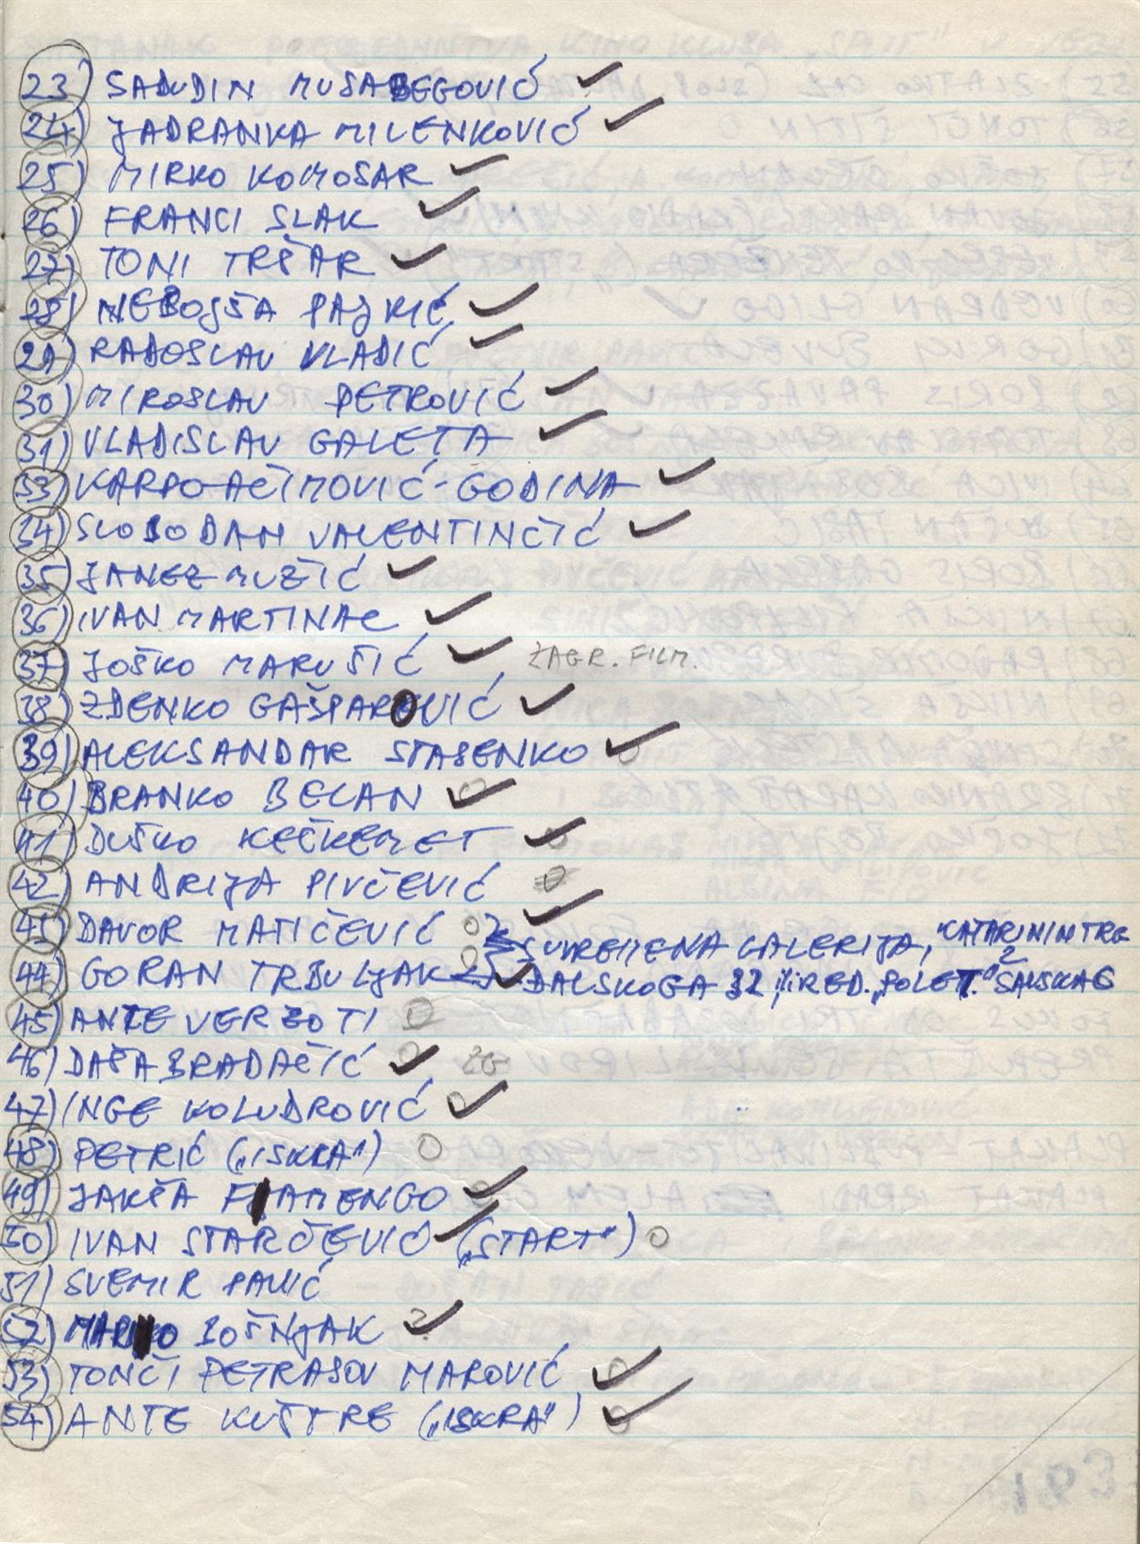 23) SADUDIN MUSABEGOVIĆ ✓
24) JADRANKA MILENKOVIĆ ✓
25) MIRKO KOMOSAR ✓
26) FRANCI SLAK ✓
27) TONI TRŠAR ✓
28) NEBOJŠA PAJKIĆ ✓
29) RADOSLAV VLADIĆ ✓
30) MIROSLAV PETROVIĆ ✓
31) VLADISLAV GALETA ✓
33) KARPO AĆIMOVIĆ-GODINA ✓
34) SLOBODAN VALENTINČIĆ ✓
35) JANEZ MUŽIĆ ✓
36) IVAN MARTINAC ✓
37) JOŠKO MARUŠIĆ ✓ ZAGR. FILM.
38) ZDENKO GAŠPAROVIĆ ✓
39) ALEKSANDAR STASENKO ✓
40) BRANKO BELAN ✓
41) DUŠKO KEČKEMET ✓
42) ANDRIJA PIVČEVIĆ
43) DAVOR MATIČEVIĆ ✓ SUVREMENA GALERIJA, KATARININ TRG 2
44) GORAN TRBULJAK ✓ ĐALSKOGA 32 ili RED. „POLET." ĐALSKAG
45) ANTE VERZOTI
46) DAŠA BRADAČIĆ ✓ ZG
47) INGE KOLUDROVIĆ ✓
48) PETRIĆ („ISKRA")
49) JAKŠA FJAMENGO ✓
50) IVAN STARČEVIĆ ✓ („START")
51) SVEMIR PAVIĆ
52) MARKO BOŠNJAK ? ✓
53) TONČI PETRASOV MAROVIĆ ✓
54) ANTE KUŠTRE („ISKRA") ✓